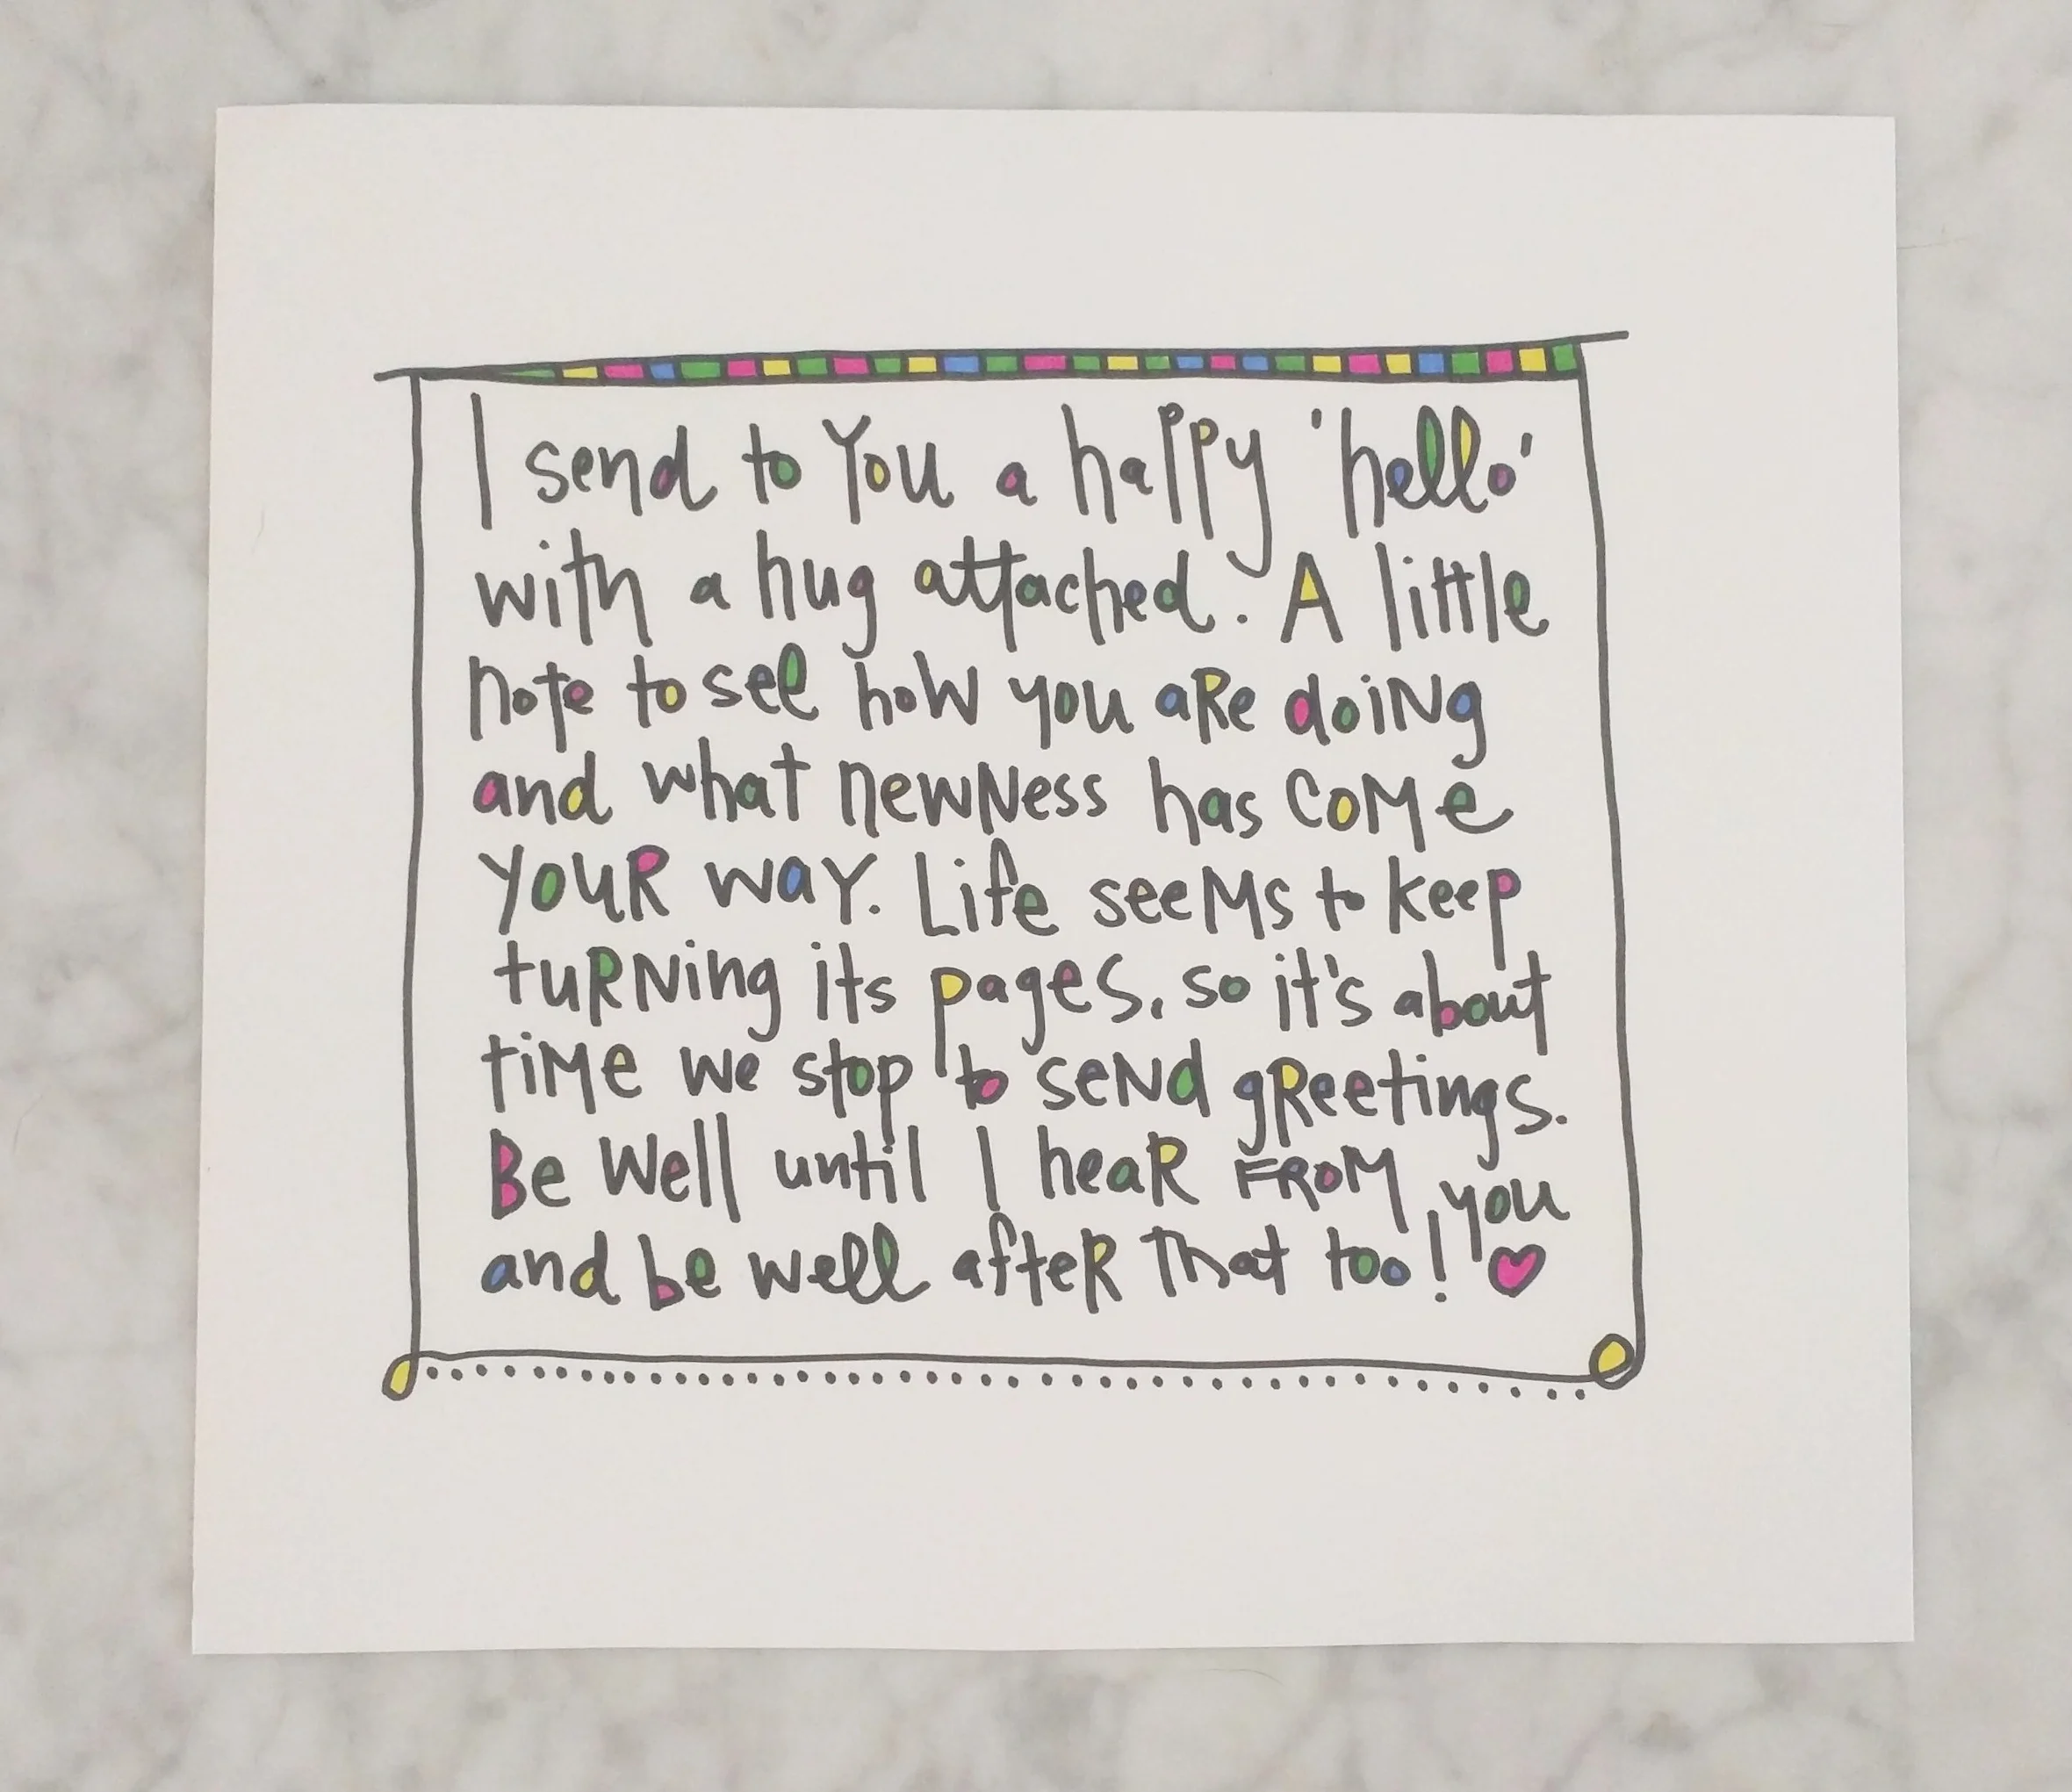 I send to You a happy 'hello'
with a hug attached. A little
note to see how you aRe doiNg
and what newNess has CoMe
YouR waY. Life seeMs to keep
tuRNing its pages, so it's about
tiMe we stop to seNd gReetings.
Be Well until I heaR FRoM you
and be well afteR That too! ♥